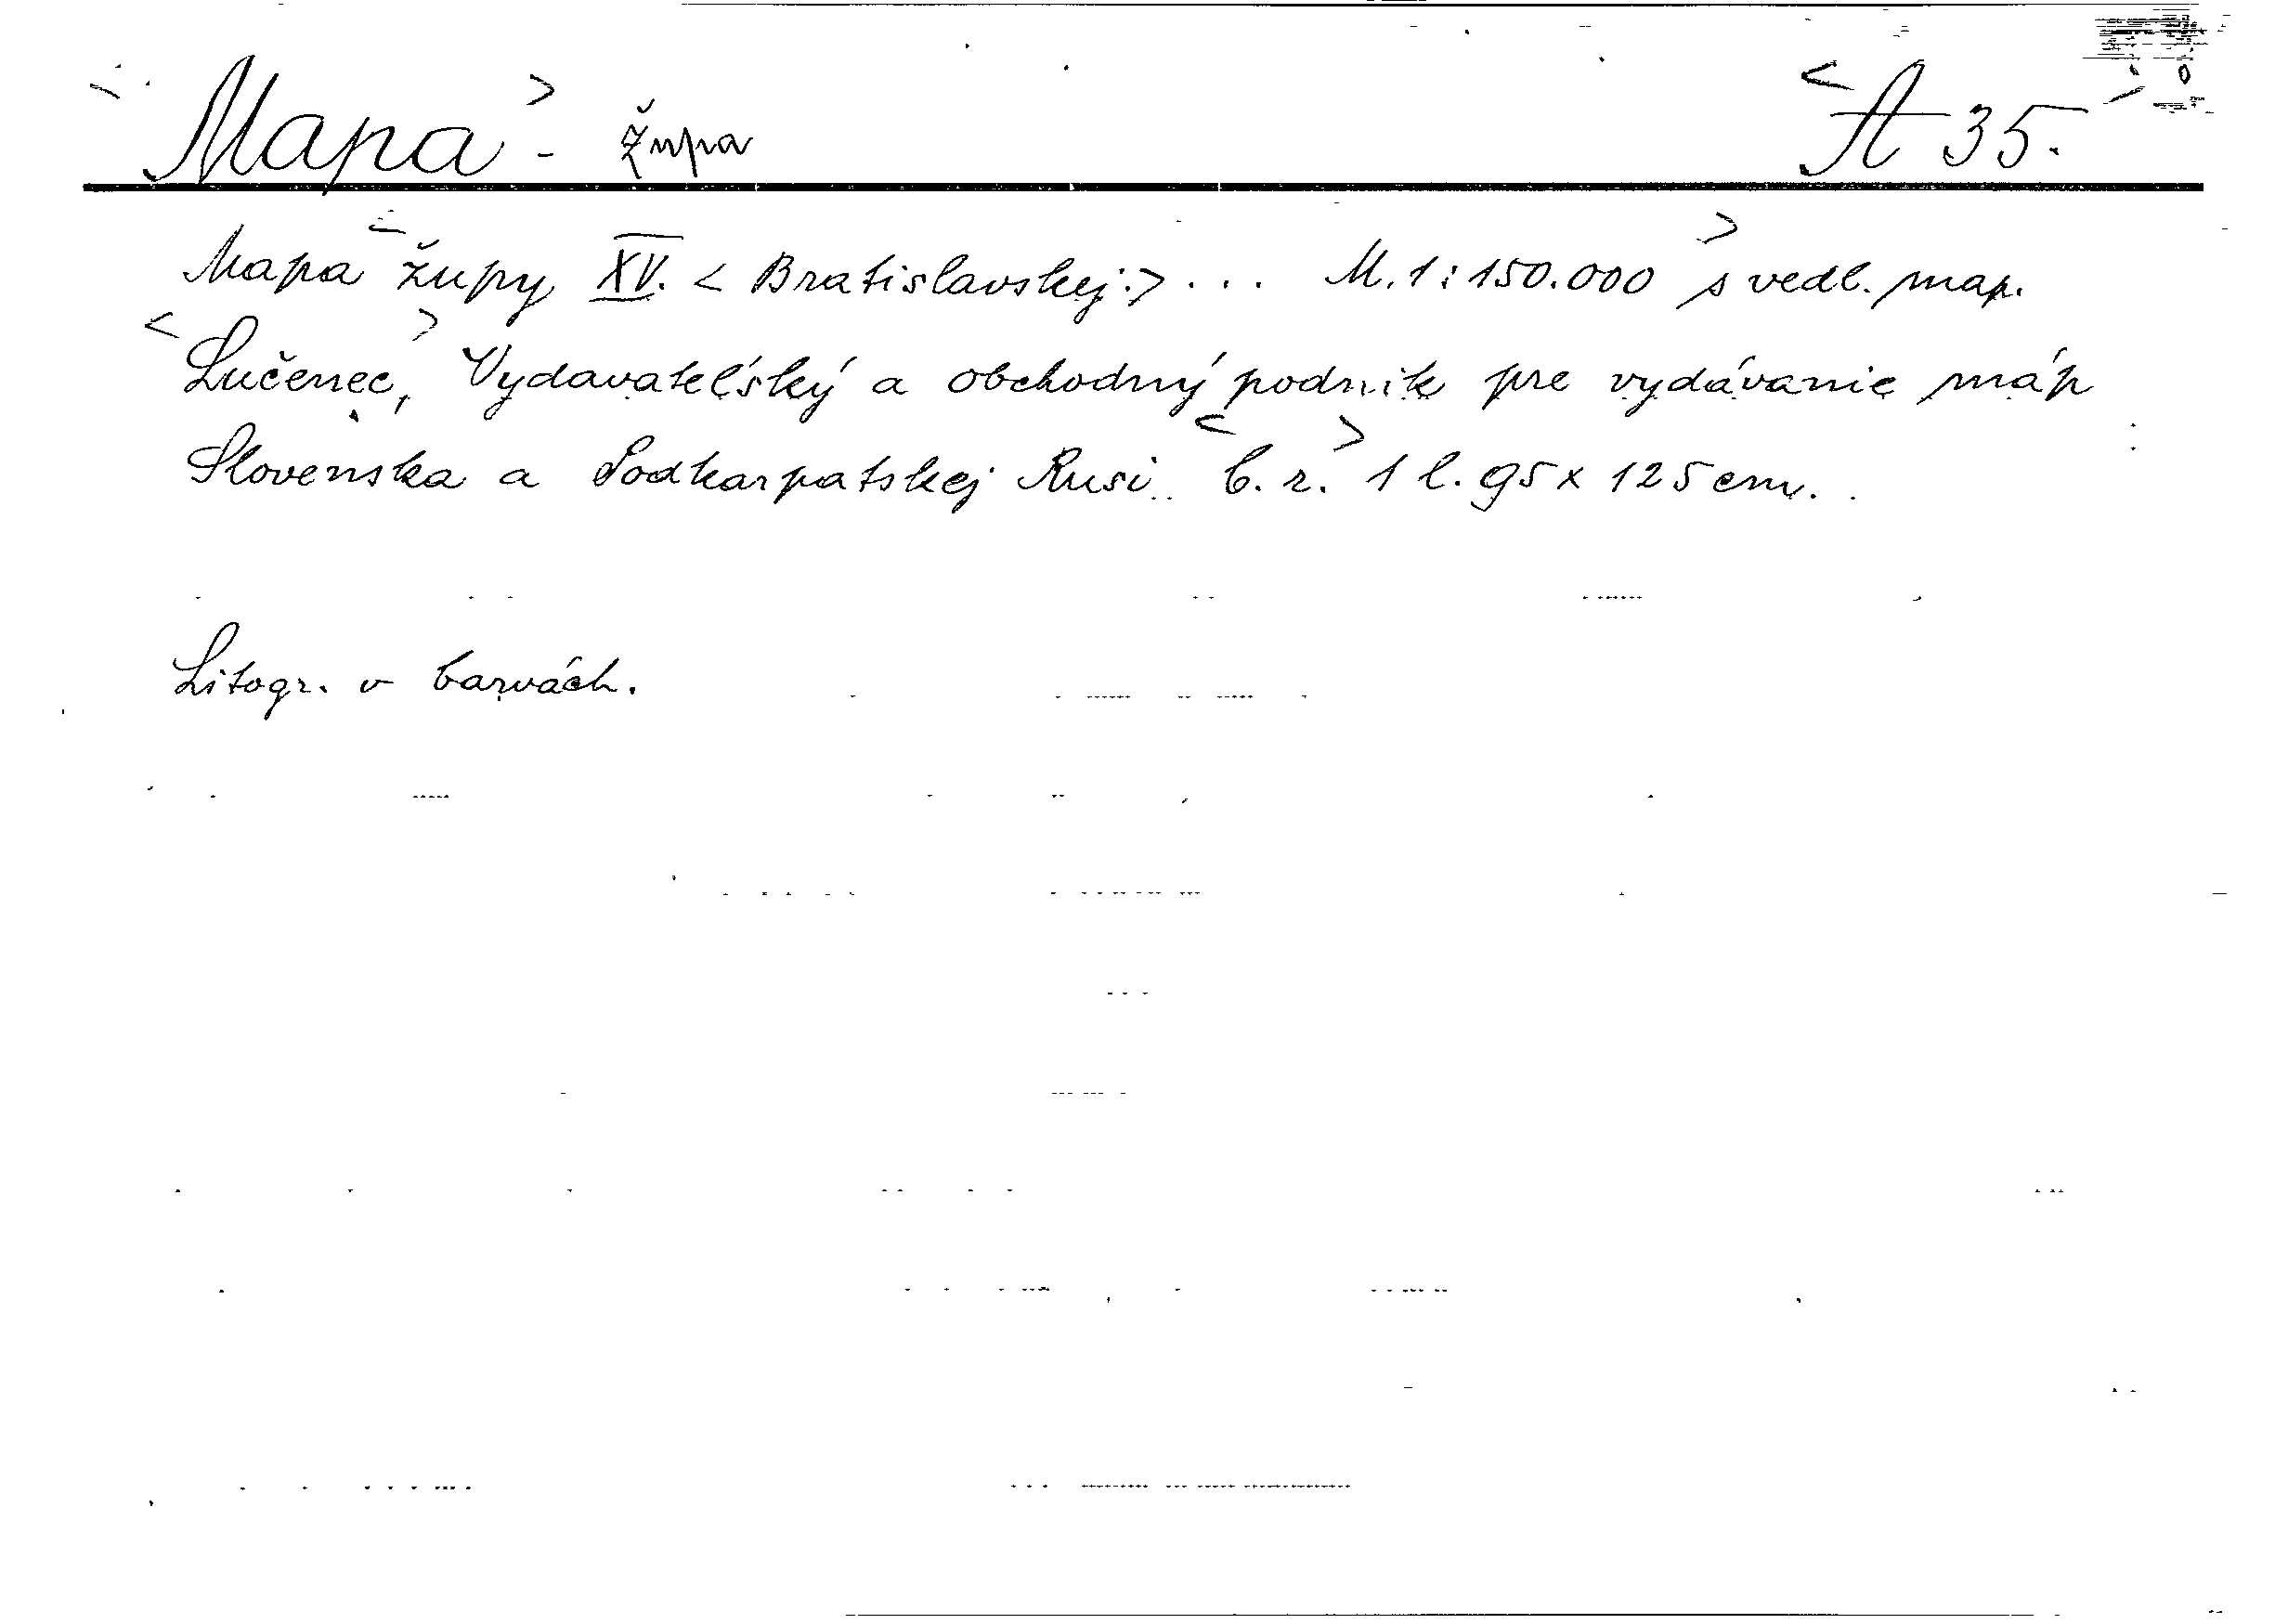 Mapa - župa A 35.
Mapa župy XV. < Bratislavskej:> ... M. 1:150.000 s vedl. map.
Lučenec, Vydavateľský a obchodný podnik pre vydávanie máp
Slovenska a Podkarpatskej Rusi. b. r. 1 l. 95 x 125 cm.
Litogr. v barvách.